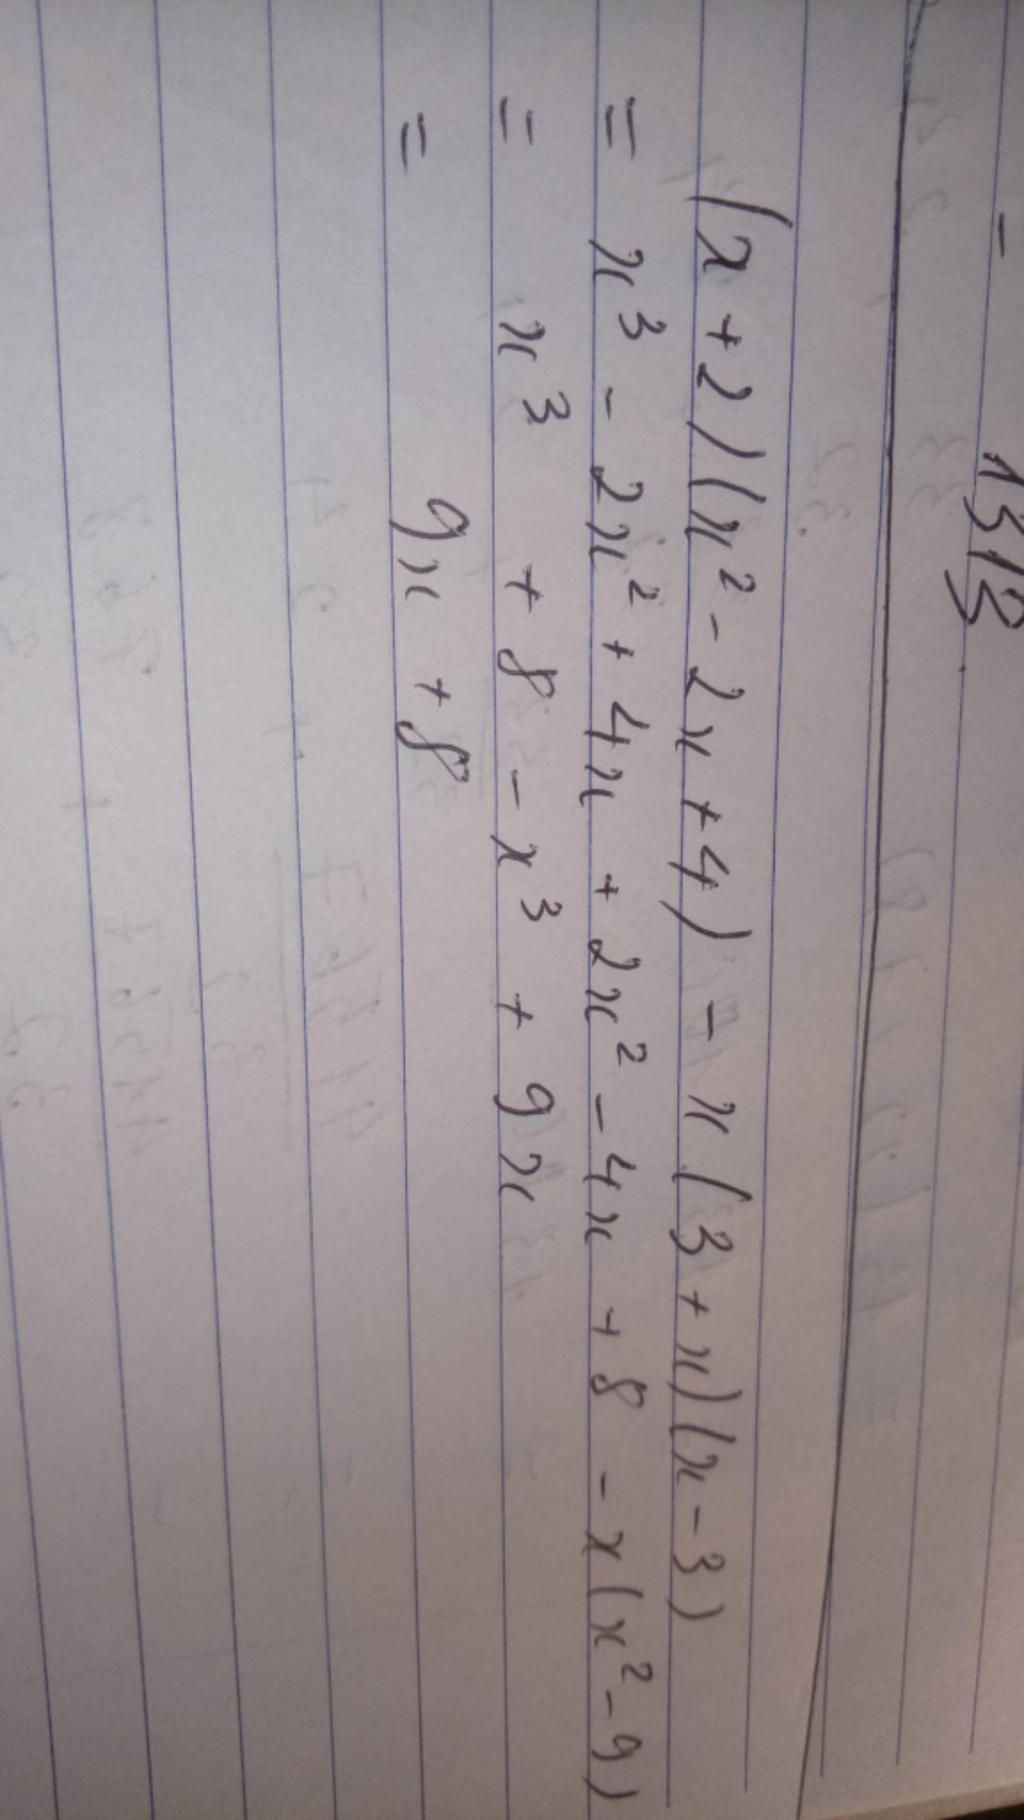 (x + 2)(x² - 2x + 4) - x(3 + x)(x - 3)
= x³ - 2x² + 4x + 2x² - 4x + 8 - x(x² - 9)
= x³ + 8 - x³ + 9x
= 9x + 8